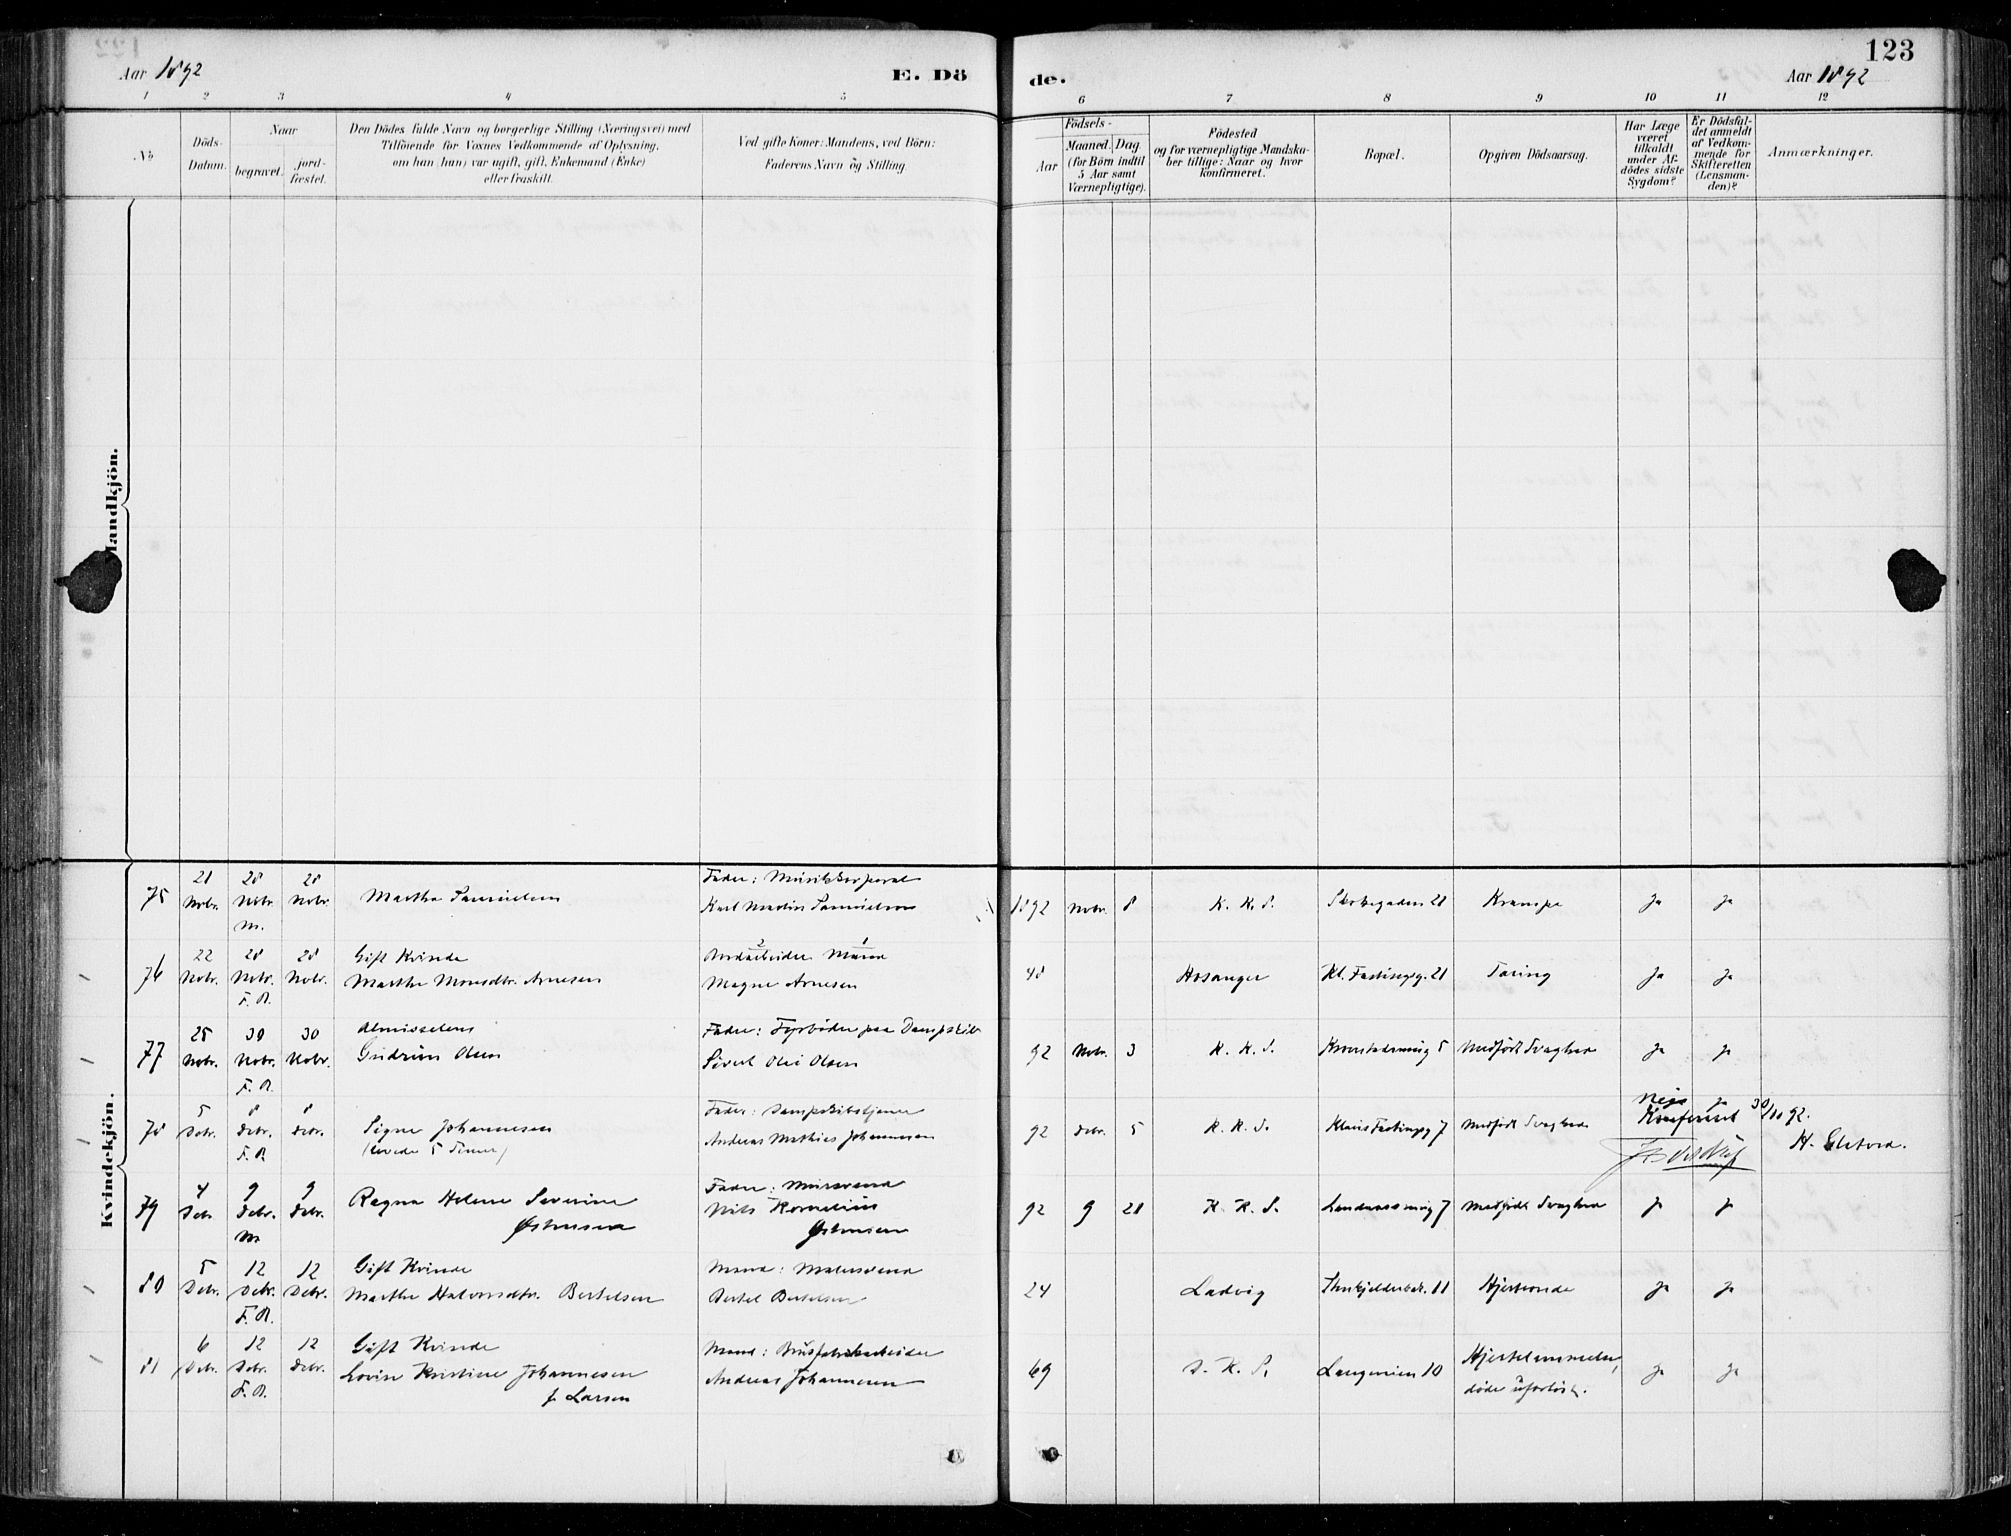 123
Aar 1892
E. Dö
de.
Aar 1892
1 2 3 4 5 6 7 8 9 10 11 12
No
Döds-
Datum.
Naar
begravet.
jord-
fæstet.
Den Dödes fulde Navn og borgerlige Stilling (Næringsvei) med
Tilföiende for Voxnes Vedkommende af Oplysning,
om han (hun) var ugift, gift, Enkemand (Enke)
eller fraskilt.
Ved gifte Koner: Mandens, ved Börn:
Faderens Navn og Stilling.
Födsels-
Aar
Maaned. Dag
(for Börn indtil
5 Aar samt
Værnepligtige).
Födested
og for værnepligtige Mandska-
ber tillige: Naar og hvor
konfirmeret.
Bopæl.
Opgiven Dödsaarsag.
Har Læge
været
tilkaldt
under Af-
dödes sidste
Sygdom?
Er Dödsfal-
det anmeldt
af Vedkom-
mende for
Skifteretten
(Lensman-
den)?
Anmærkninger.
Mandkjön.
Kvindekjön.
75
21 Nobr.
28 Nobr. M.
28 Nobr.
Martha Samuelsen
Fader: Musikkorporal
Karl Martin Samuelsen
1892 Nobr. 8
K. K. S.
Skottegaden 21
Krampe
Ja
Ja
76
22 Nobr.
28 Nobr. F. A.
28 Nobr.
Gift Kvinde
Marthe Monsdtr. Arnesen
2 1
Jordarbeider Mand
Magne Arnesen
48
Hosanger
Kl. Fastingsg. 21
Tæring
Ja
Ja
77
25 Nobr.
30 Nobr. F. A.
30 Nobr.
Almisselem
Gudrun Olsen
Fader: Fyrböder paa Dampskib
Sivert Olai Olsen
92 Nobr. 3
K. K. S.
5
Medfödt Svaghed
Ja
Ja
78
5 Debr.
8 Debr. F. A.
8 Debr.
Signe Johannesen
(levede 5 Timer)
Fader: Dampskibstjener
Andreas Mathias Johannesen
92 Debr. 5
K. K. S.
Klaus Fastingsg 7
Medfödt Svaghed
Nei
Ja
Konfereret 30/10 92.
H. Elstved.
79
4 Debr.
9 Debr. M.
9 Debr.
Ragna Helene Severine
Östensen
Fader: Mursvend
Nils Kornelius
Östensen
92 9 28
K. K. S.
7
Medfödt Svaghed
Ja
Ja
80
5 Debr.
12 Debr. F. A.
12 Debr.
Gift Kvinde
Marthe Halvorsdtr. Bertelsen
Mand: Malersvend
Bertel Bertelsen
24
Ladvig
11
Hjerteonde
Ja
Ja
81
6 Debr.
12 Debr. F. A.
12 Debr.
Gift Kvinde
Lovise Kristine Johannesen
f. Larsen
Mand:
Andreas Johannesen
69
D. K. S.
10
döde uforlöst.
Ja
Ja